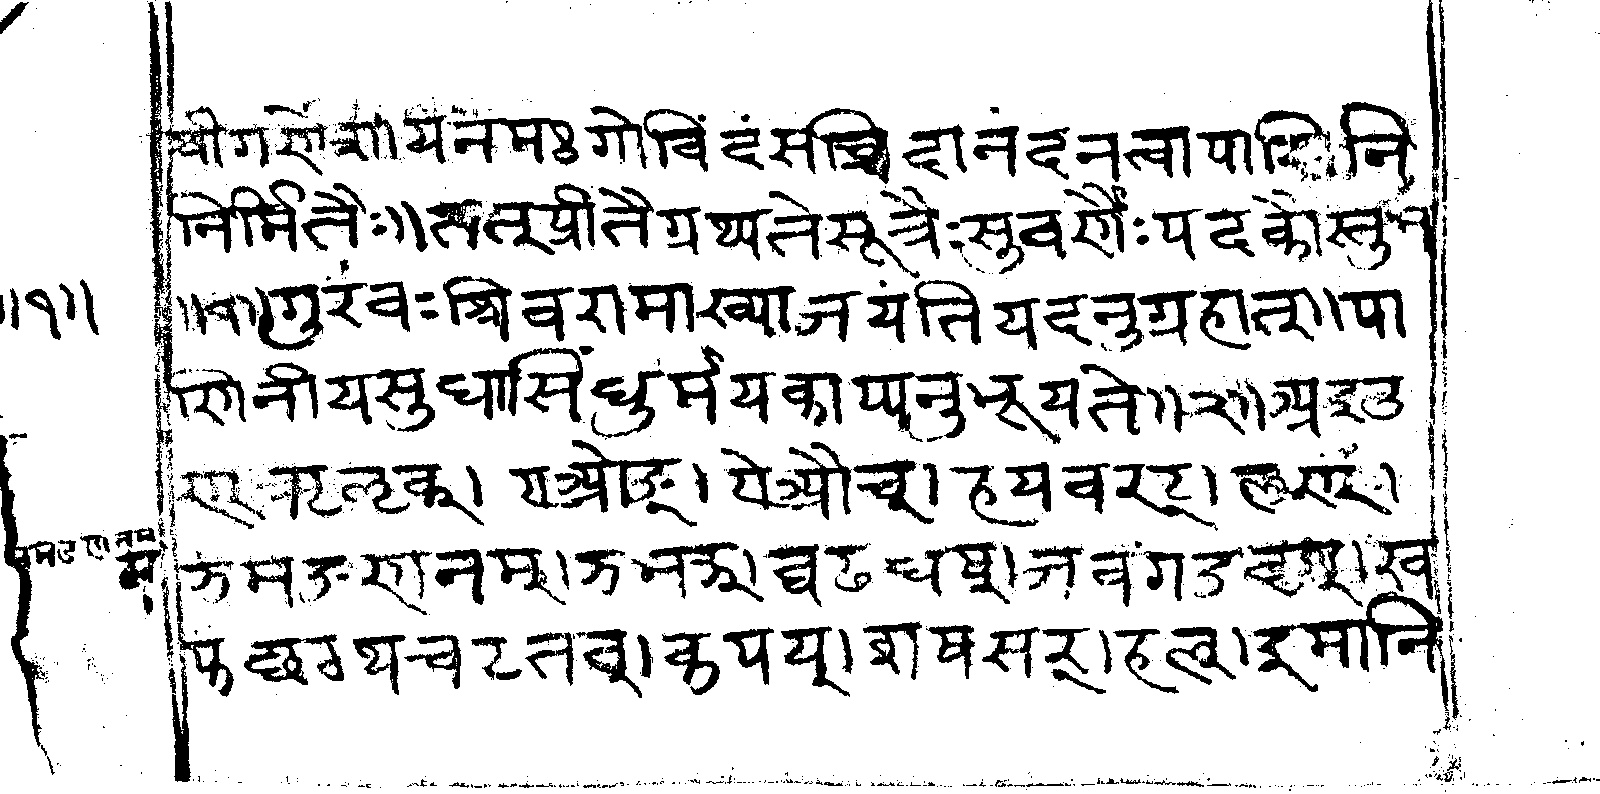 श्रीगणेशायनमः गोविंदंसच्चिदानंदनत्वापाणिनि
निर्मितैः॥तत्प्रीतैग्रथ्यतेसूत्रैःसुवर्णैःपदकौस्तुभ
॥१॥गुरंवःशिवरामाख्याजयंतियदनुग्रहात्॥पा
॥१॥
णिनीयसुधासिंधुर्मयकाप्यनुभूयते॥२॥अइउ
ण् ऋऌक्। एओङ्। ऐऔच्। हयवरट्। लण्।
ञमङणनम्। झभञ्। घढधष्। जबगडदश्। ख
फछठथचटतव्। कपय्। शषसर्। हल्। इमानि